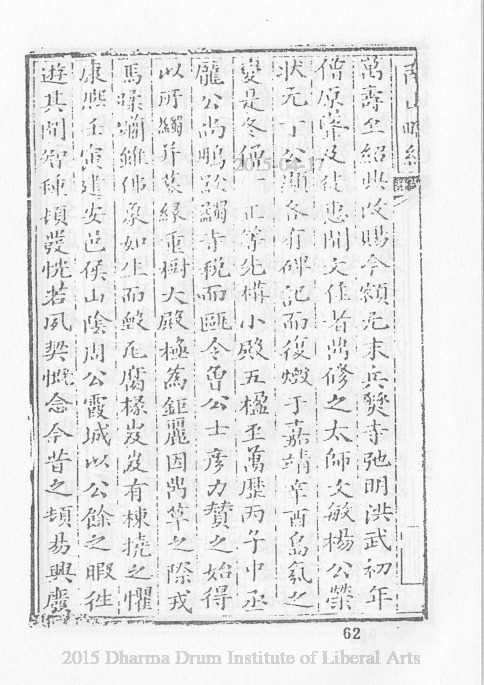 南山略紀
萬壽至紹興改賜今額元末兵燹寺弛明洪武初年
僧原澤及徒忠聞文佳者鼎修之太師文敏楊公榮
狀元丁公顯各有碑記而復燬于嘉靖辛酉島氛之
變是冬僧正等先構小殿五楹至萬歷丙子中丞
龐公尚鵬歎蠲寺稅而甌令曾公士彥力贊之始得
以所蠲并募緣重樹大殿極為鉅麗因鼎革之際戎
馬蹂躪雖佛象如生而毀瓦腐椽岌岌有棟撓之懼
康熙壬寅建安邑侯山陰周公霞城以公餘之暇徃
遊其間智種頓發恍若夙契慨念今昔之頻易興廢
2015-04-17
62
2015 Dharma Drum Institute of Liberal Arts